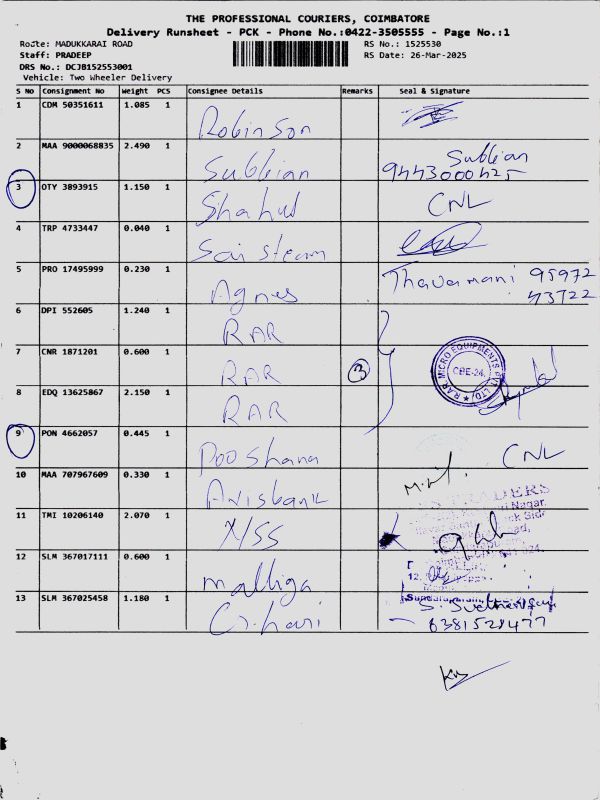 THE PROFESSIONAL COURIERS, COIMBATORE
Delivery Runsheet - PCK - Phone No.:0422-3505555 - Page No.:1
Route: MADUKKARAI ROAD
RS No.: 1525530
Staff: PRADEEP
RS Date: 26-Mar-2025
DRS No.: DCJB152553001
Vehicle: Two Wheeler Delivery
S No Consignment No Weight PCS Consignee Details Remarks Seal & Signature
1 CDM 50351611 1.085 1 Robinson
2 MAA 9000068835 2.490 1 Subbian Subbian
9443000425
3 OTY 3893915 1.150 1 Shahul CNL
4 TRP 4733447 0.040 1 Sai steam
5 PRO 17495999 0.230 1 Agnes Thavamani 95972
43722
6 DPI 552605 1.240 1 RAR
7 CNR 1871201 0.600 1 RAR 3 R.A.R. MICRO EQUIPMENTS PVT. LTD. CBE-24.
8 EDQ 13625867 2.150 1 RAR
9 PON 4662057 0.445 1 Pooshana CNL
10 MAA 707967609 0.330 1 Axisbank
11 TMI 10206140 2.070 1 TRADERS
12 SLM 367017111 0.600 1 Malliga
13 SLM 367025458 1.180 1 G.hari
6381521477